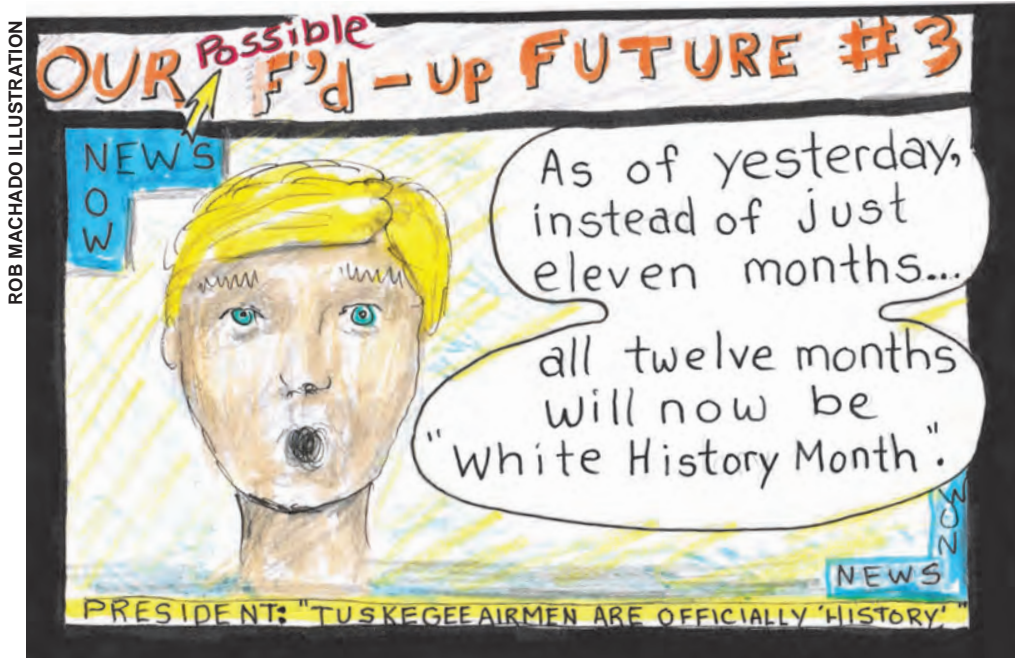 ROB MACHADO ILLUSTRATION
OUR Possible F'd-up FUTURE #3
NEWS
NOW
As of yesterday,
instead of just
eleven months...
all twelve months
will now be
"White History Month".
NOW
NEWS
PRESIDENT: "TUSKEGEE AIRMEN ARE OFFICIALLY 'HISTORY'"